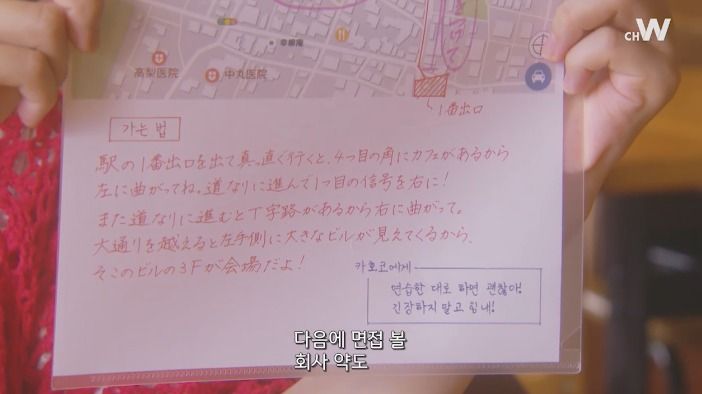 CHW
幸楽庵
高梨医院
中丸医院
1番出口
가는 법
駅の1番出口を出て真っ直ぐ行くと、4つ目の角にカフェがあるから
左に曲がってね。道なりに進んで1つ目の信号を右に!
また道なりに進むとT字路があるから右に曲がって。
大通りを越えると左手側に大きなビルが見えてくるから、
そこのビルの3Fが会場だよ!
카호코에게
연습한 대로 하면 괜찮아!
긴장하지 말고 힘내!
다음에 면접 볼
회사 약도